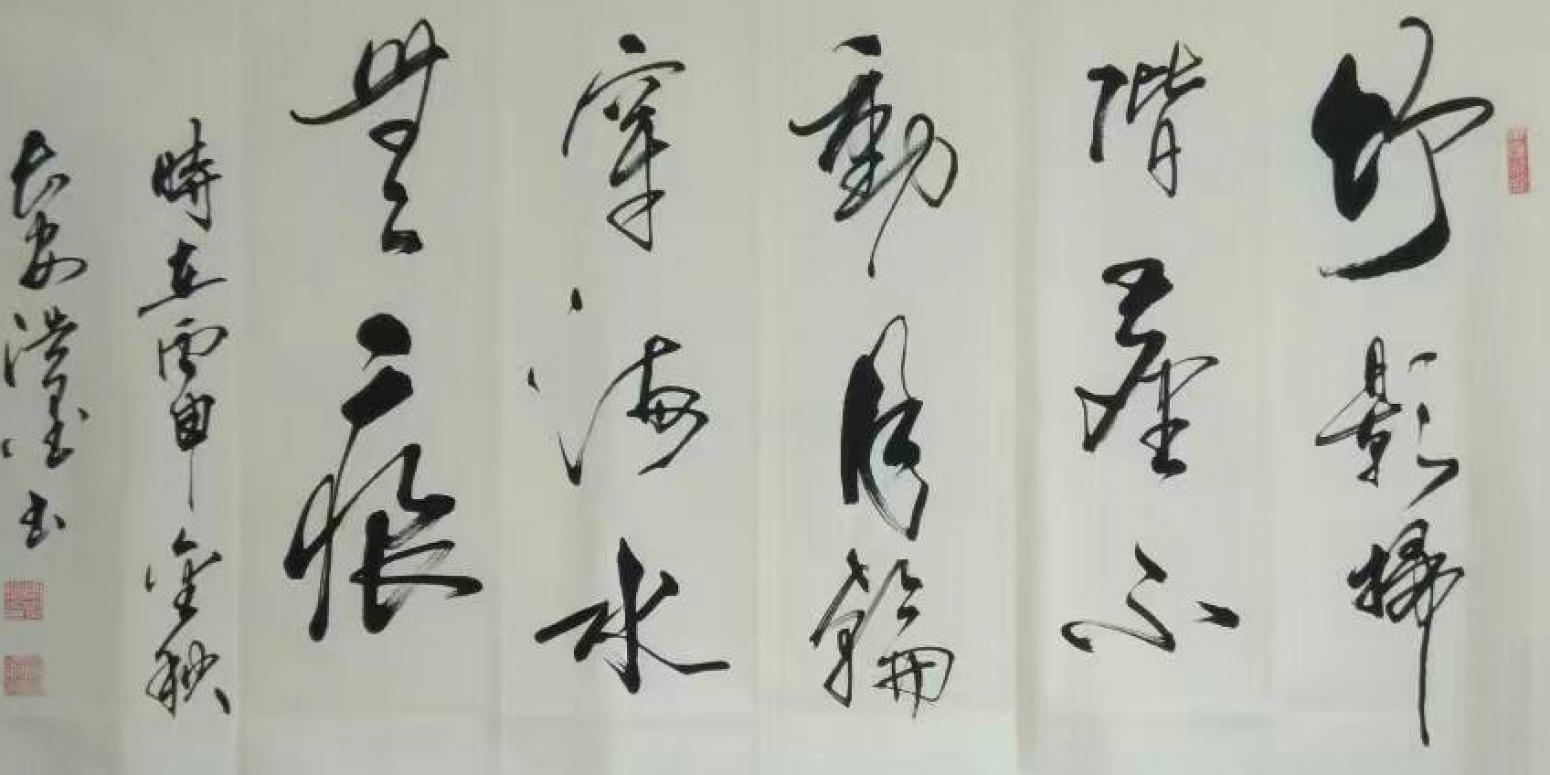 竹影掃
階塵不
動月輪
穿海水
無痕
時在丙申金秋
长安洪墨书